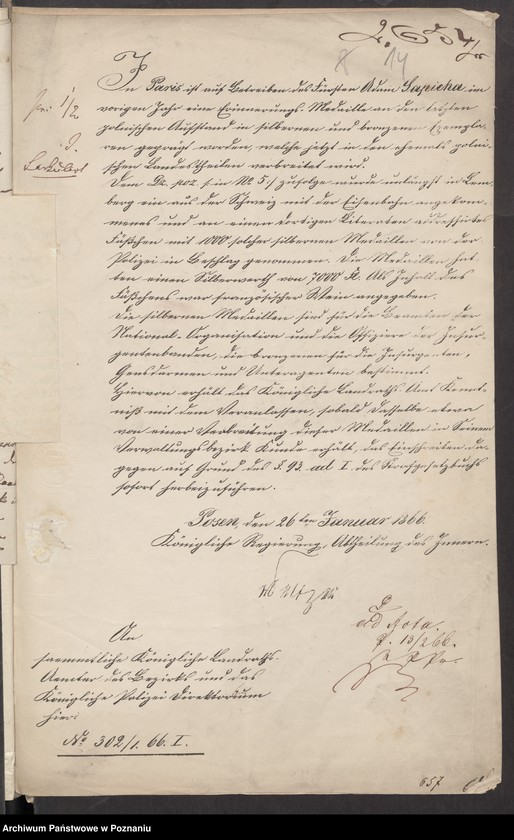 2654/1
8 14
In Paris ist auf Betreiben des Fürsten Adam Sapieha im
vorigen Jahr eine Erinnerungs-Medaille an den letzten
polnischen Aufstand in silbernen und bronzenen Exempla-
ren geprägt worden, welche jetzt in den ehemals polni-
schen Landestheilen verbreitet wird.
Dem Dz. poz. in No 5./ zufolge wurde unlängst in Lem-
berg ein aus der Schweiz mit der Eisenbahn angekom-
menes und an einen dortigen Literaten addressirtes
Fäßchen mit 1000 solcher silbernen Medaillen von der
Polizei in Beschlag genommen. Die Medaillen hat-
ten einen Silberwerth von 7000 Fl. Als Inhalt des
Fäßchens war französischer Wein angegeben.
Die silbernen Medaillen sind für die Beamten der
National-Organisation und die Offiziere der Insur-
gentenbanden, die bronzenen für die Insurgenten,
Gensdarmen und Unteragenten bestimmt.
Hiervon erhält das Königliche Landraths Amt Kennt-
niß mit dem Veranlassen, sobald dasselbe etwa
von einer Verbreitung dieser Medaillen in Seinem
Verwaltungsbezirk Kunde erhält, das Einschreiten da-
gegen auf Grund des §. 93. ad I. des Strafgesetzbuchs
sofort herbeizuführen.
Posen, den 26ten Januar 1866.
Königliche Regierung, Abtheilung des Innern.
ad Acta.
P. 13/2 66.
An
saemmtliche Königliche Landraths-
Aemter des Bezirks und das
Königliche Polizei Direktorium
hier
No 302/1. 66. I.
657
Archiwum Państwowe w Poznaniu